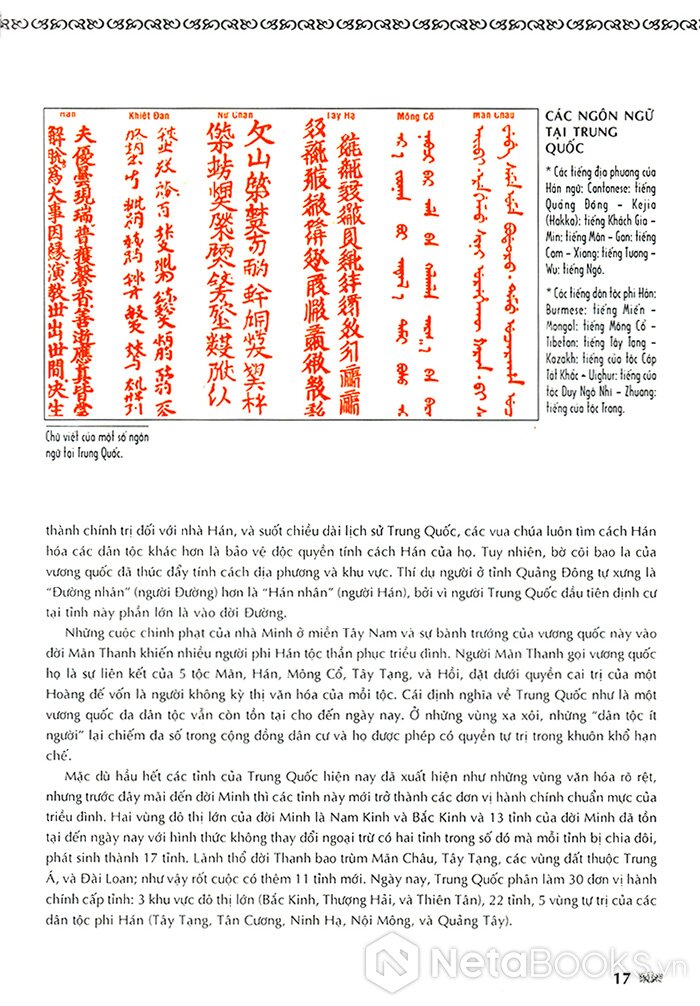 Hán
Khiết Đan
Nữ Chân
Tây Hạ
Mông Cổ
Mãn Châu
夫優曇現瑞普獲馨香善逝應真皆當
解脫為大事因緣演教世出世間決生
CÁC NGÔN NGỮ
TẠI TRUNG
QUỐC
* Các tiếng địa phương của
Hán ngữ: Cantonese: tiếng
Quảng Đông – Kejia
(Hakka): tiếng Khách Gia –
Min: tiếng Mân – Gan: tiếng
Cam – Xiang: tiếng Tương –
Wu: tiếng Ngô.
* Các tiếng dân tộc phi Hán:
Burmese: tiếng Miến –
Mongol: tiếng Mông Cổ –
Tibetan: tiếng Tây Tạng –
Kazakh: tiếng của tộc Cáp
Tát Khắc – Uighur: tiếng của
tộc Duy Ngô Nhĩ – Zhuang:
tiếng của tộc Trang.
Chữ viết của một số ngôn
ngữ tại Trung Quốc.
thành chính trị đối với nhà Hán, và suốt chiều dài lịch sử Trung Quốc, các vua chúa luôn tìm cách Hán
hóa các dân tộc khác hơn là bảo vệ độc quyền tính cách Hán của họ. Tuy nhiên, bờ cõi bao la của
vương quốc đã thúc đẩy tính cách địa phương và khu vực. Thí dụ người ở tỉnh Quảng Đông tự xưng là
“Đường nhân” (người Đường) hơn là “Hán nhân” (người Hán), bởi vì người Trung Quốc đầu tiên định cư
tại tỉnh này phần lớn là vào đời Đường.
Những cuộc chinh phạt của nhà Minh ở miền Tây Nam và sự bành trướng của vương quốc này vào
đời Mãn Thanh khiến nhiều người phi Hán tộc thần phục triều đình. Người Mãn Thanh gọi vương quốc
họ là sự liên kết của 5 tộc Mãn, Hán, Mông Cổ, Tây Tạng, và Hồi, đặt dưới quyền cai trị của một
Hoàng đế vốn là người không kỳ thị văn hóa của mỗi tộc. Cái định nghĩa về Trung Quốc như là một
vương quốc đa dân tộc vẫn còn tồn tại cho đến ngày nay. Ở những vùng xa xôi, những “dân tộc ít
người” lại chiếm đa số trong cộng đồng dân cư và họ được phép có quyền tự trị trong khuôn khổ hạn
chế.
Mặc dù hầu hết các tỉnh của Trung Quốc hiện nay đã xuất hiện như những vùng văn hóa rõ rệt,
nhưng trước đây mãi đến đời Minh thì các tỉnh này mới trở thành các đơn vị hành chính chuẩn mực của
triều đình. Hai vùng đô thị lớn của đời Minh là Nam Kinh và Bắc Kinh và 13 tỉnh của đời Minh đã tồn
tại đến ngày nay với hình thức không thay đổi ngoại trừ có hai tỉnh trong số đó mà mỗi tỉnh bị chia đôi,
phát sinh thành 17 tỉnh. Lãnh thổ đời Thanh bao trùm Mãn Châu, Tây Tạng, các vùng đất thuộc Trung
Á, và Đài Loan; như vậy rốt cuộc có thêm 11 tỉnh mới. Ngày nay, Trung Quốc phân làm 30 đơn vị hành
chính cấp tỉnh: 3 khu vực đô thị lớn (Bắc Kinh, Thượng Hải, và Thiên Tân), 22 tỉnh, 5 vùng tự trị của các
dân tộc phi Hán (Tây Tạng, Tân Cương, Ninh Hạ, Nội Mông, và Quảng Tây).
NetaBooks.vn
17